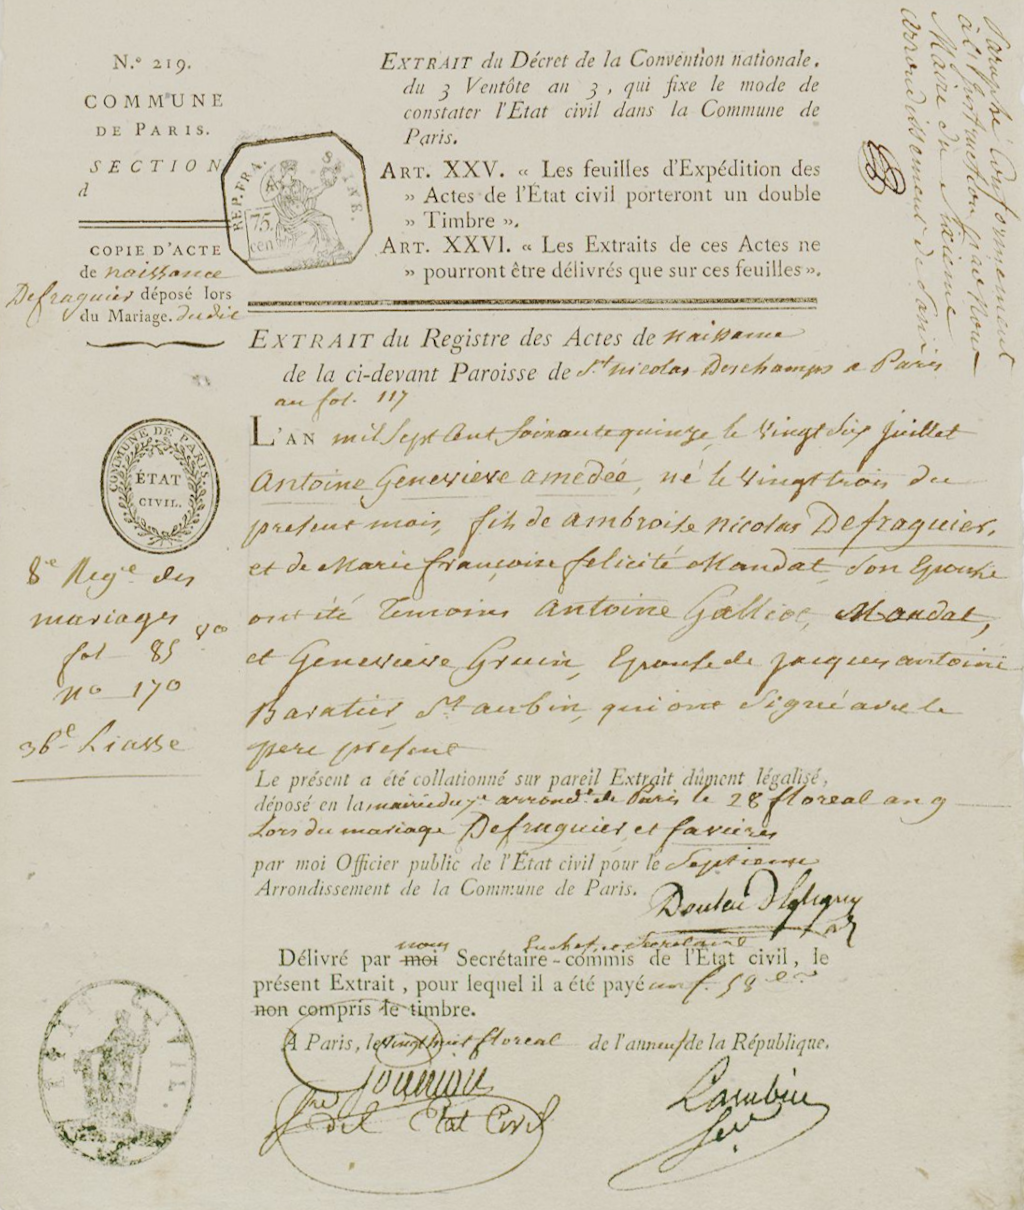 N.º 219.
COMMUNE
DE PARIS.
SECTION
d
COPIE D'ACTE
de naissance
Defraguier déposé lors
du Mariage. dudit
REP. FRA. SEINE.
75.
cen
EXTRAIT du Décret de la Convention nationale,
du 3 Ventôte an 3, qui fixe le mode de
constater l'Etat civil dans la Commune de
Paris.
ART. XXV. « Les feuilles d'Expédition des
» Actes de l'État civil porteront un double
» Timbre ».
ART. XXVI. « Les Extraits de ces Actes ne
» pourront être délivrés que sur ces feuilles ».
Paraphé Conformement
à l'instruction par nous
Maire du
arrondissement de Paris
EXTRAIT du Registre des Actes de naissance
de la ci-devant Paroisse de St. nicolas Deschamps a Paris
au fol. 117
L'AN mil Sept Cent Soixante quinze, le Vingt Six juillet
Antoine Genevieve amedée, né le Vingt trois du
present mois, fils de Ambroise Nicolas Defraguier,
et de Marie françoise felicité Mandat, Son Epouse
ont été Temoins Antoine Galliot, Mandat,
et Genevieve Gruin, Epouse de jacques antoine
Baratier, St. aubin, qui ont Signé avec le
pere présent
COMMUNE DE PARIS.
ÉTAT
CIVIL.
8e Reg.e des
mariages
fol 85 vo
no 170
36e Liasse
Le présent a été collationné sur pareil Extrait dûment légalisé,
déposé en la mairie du 7e arrond.t de Paris le 28 floreal an 9
Lors du mariage Defraguier et favieres
par moi Officier public de l'État civil pour le Septieme
Arrondissement de la Commune de Paris.
nous
Délivré par moi Secrétaire-commis de l'État civil, le
présent Extrait, pour lequel il a été payé un f. 58 c.
non compris le timbre.
A Paris, le vingt huit floreal de l'an neuf de la République.
del Etat Civil
ETAT CIVIL.